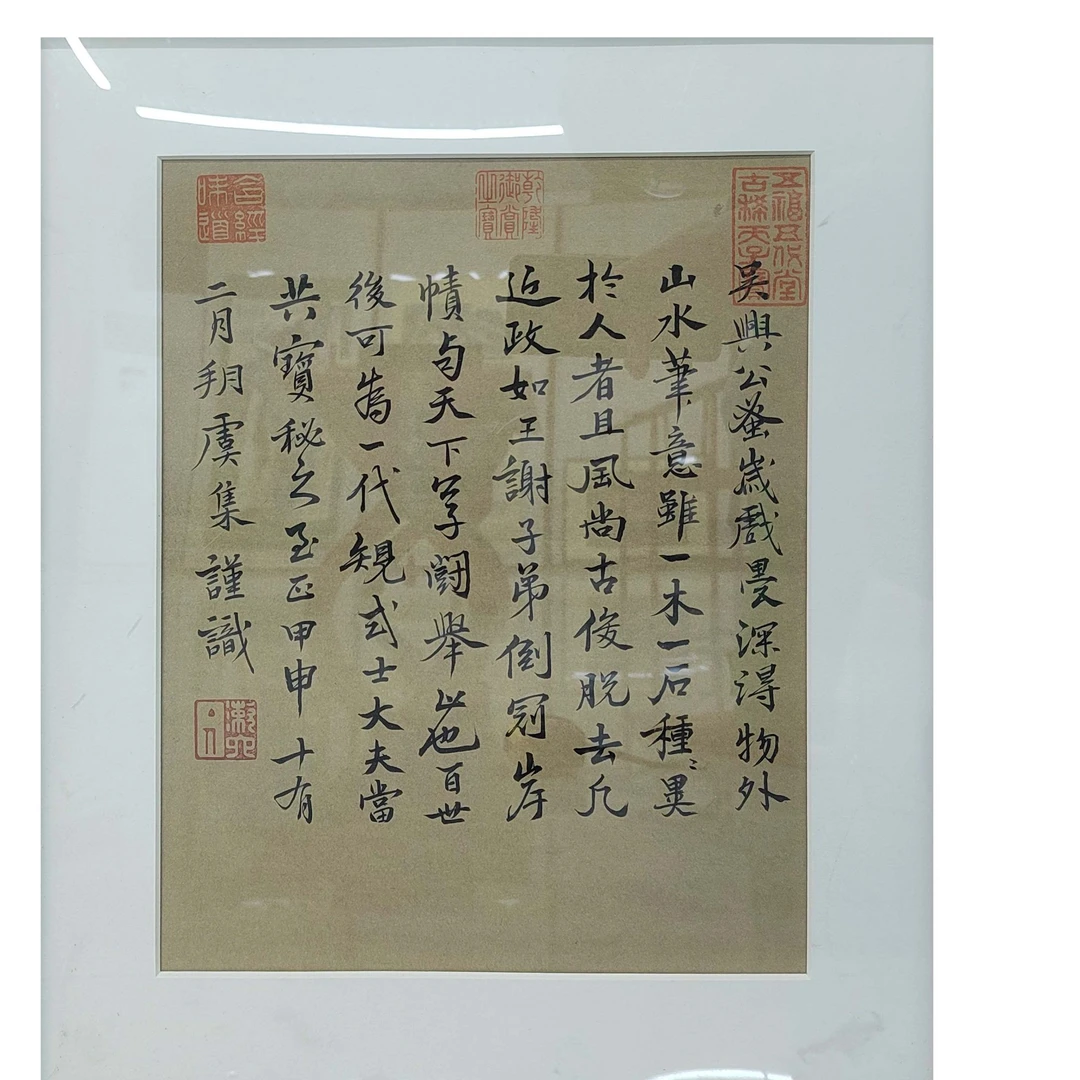 五福五代堂
古稀天子寶
吳興公蚤歲戲墨深得物外
山水筆意雖一木一石種〻異
於人者且風尚古俊脫去凡
乾隆
御賞
之寶
近政如王謝子弟倒冠岸
幘与天下学鬭舉止也百世
後可為一代規式士大夫當
共寶秘之至正甲申十有
含經
味道
二月朔虞集謹識